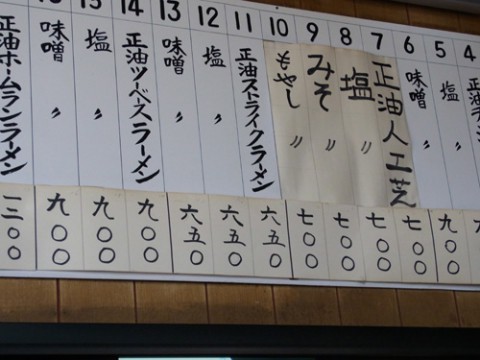 4
正油ラ
5
塩 〃
6
味噌 〃
九〇〇
7
正油人工芝
七〇〇
8
塩 〃
七〇〇
9
みそ 〃
七〇〇
10
もやし 〃
七〇〇
11
正油ストライクラーメン
六五〇
12
塩 〃
六五〇
13
味噌 〃
六五〇
14
正油ツーベースラーメン
九〇〇
塩 〃
九〇〇
味噌 〃
九〇〇
正油ホームランラーメン